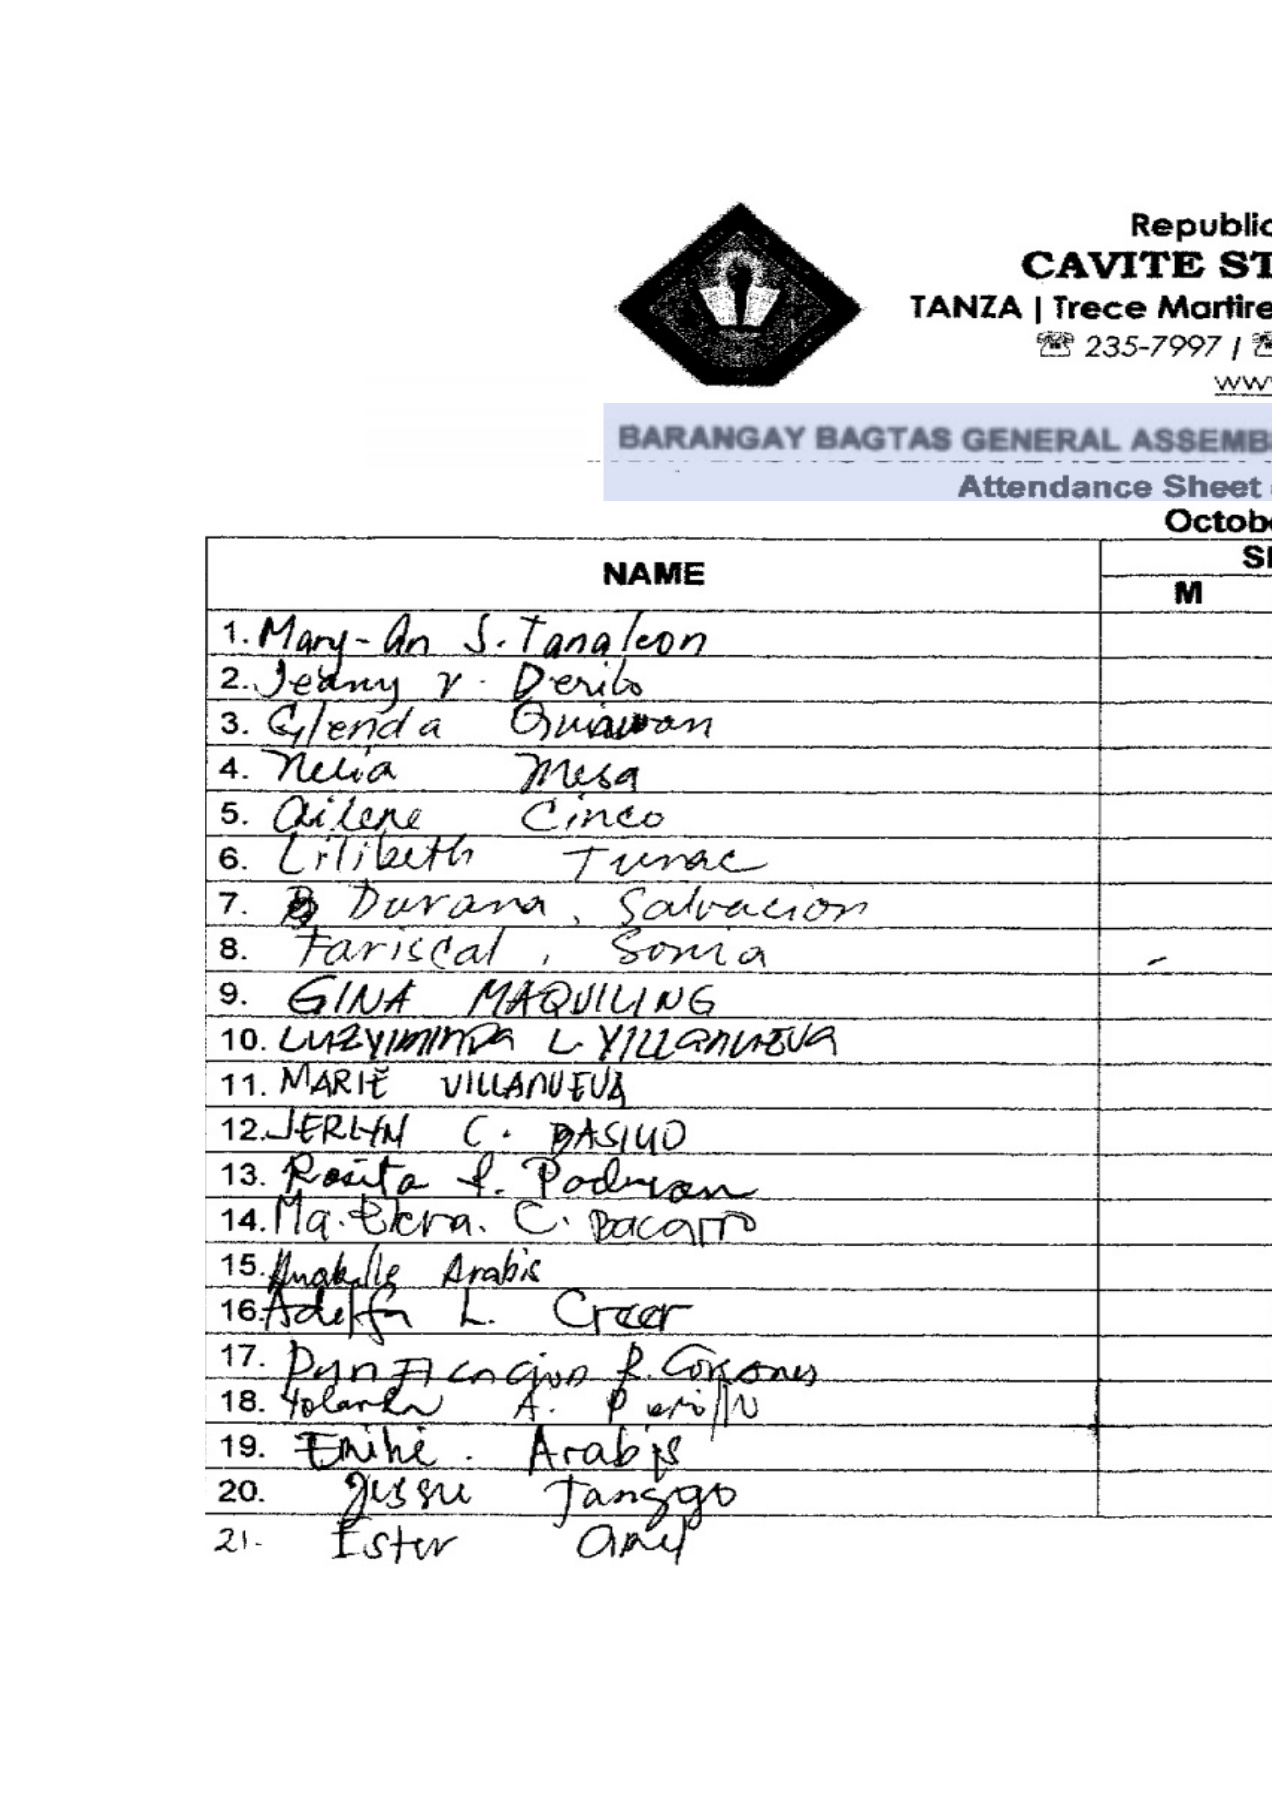 Republic
CAVITE ST
TANZA | Trece Martire
☏ 235-7997 / ☏
www
BARANGAY BAGTAS GENERAL ASSEMB
Attendance Sheet
Octobe
NAME
SE
M
1. Mary-An S. Tanaleon
2. Jeanny V. Derilo
3. Glenda
4. Nelia Mesa
5. Ailene Cinco
6. Lilibeth Tunac
7. Durana, Salvacion
8. Fariscal, Sonia
9. GINA MAQUILING
10. LUZVIMINDA L. VILLANUEVA
11. MARIE VILLANUEVA
12. JERLYN C. BASILIO
13. Rosita P.
14. Ma. Elena. C. Bacarro
15. Anabelle Arabis
16. Adelfa L. Creer
17. R.
18. Yolanda A.
19. Arabis
20. Tanggo
21. Ester